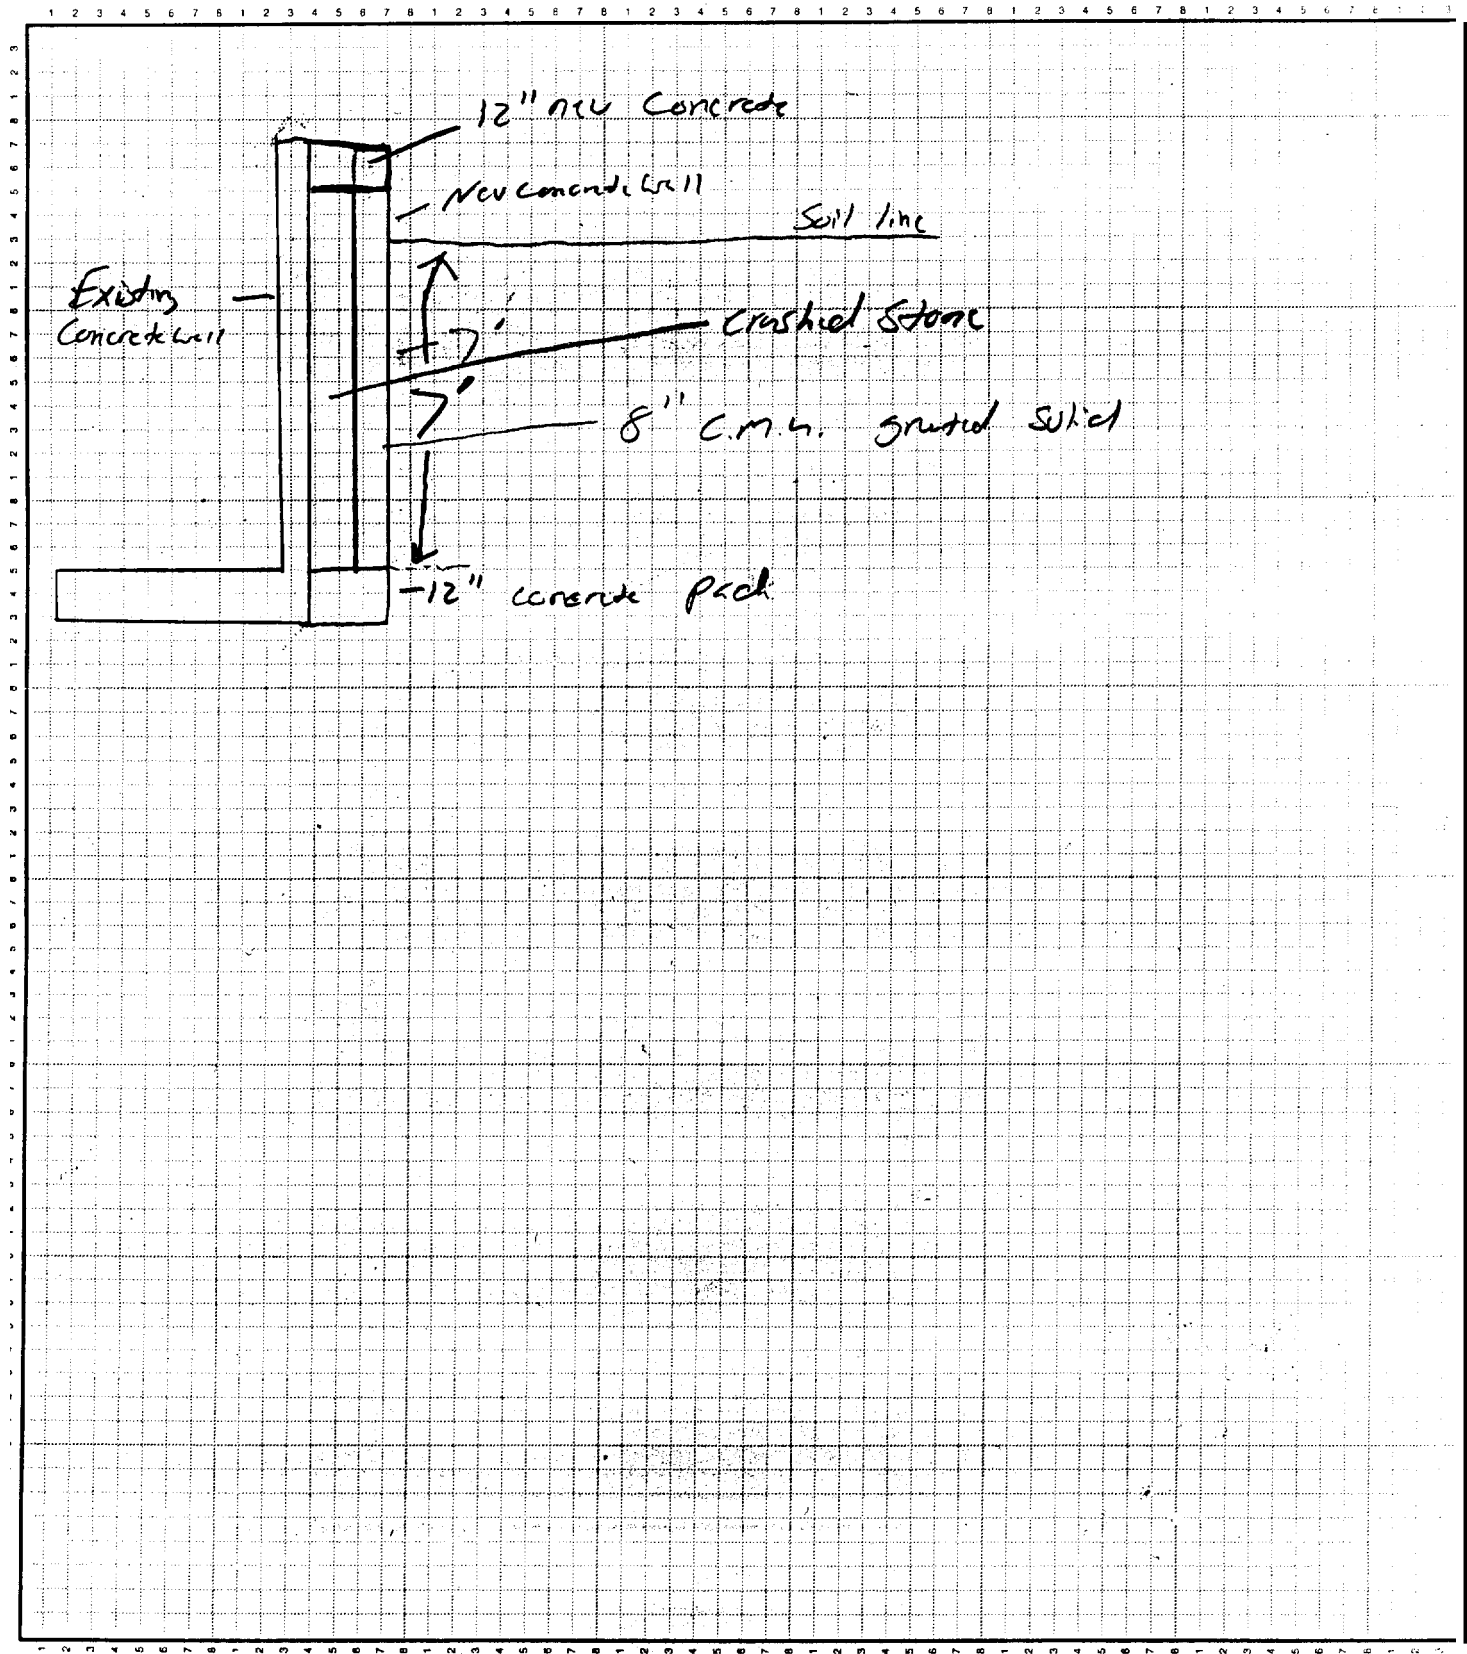 12" new Concrete
New Concrete Wall
Soil line
Existing
Concrete Wall
± 7'
Crushed Stone
7'
8" C.M.U. grouted Solid
12" concrete pad